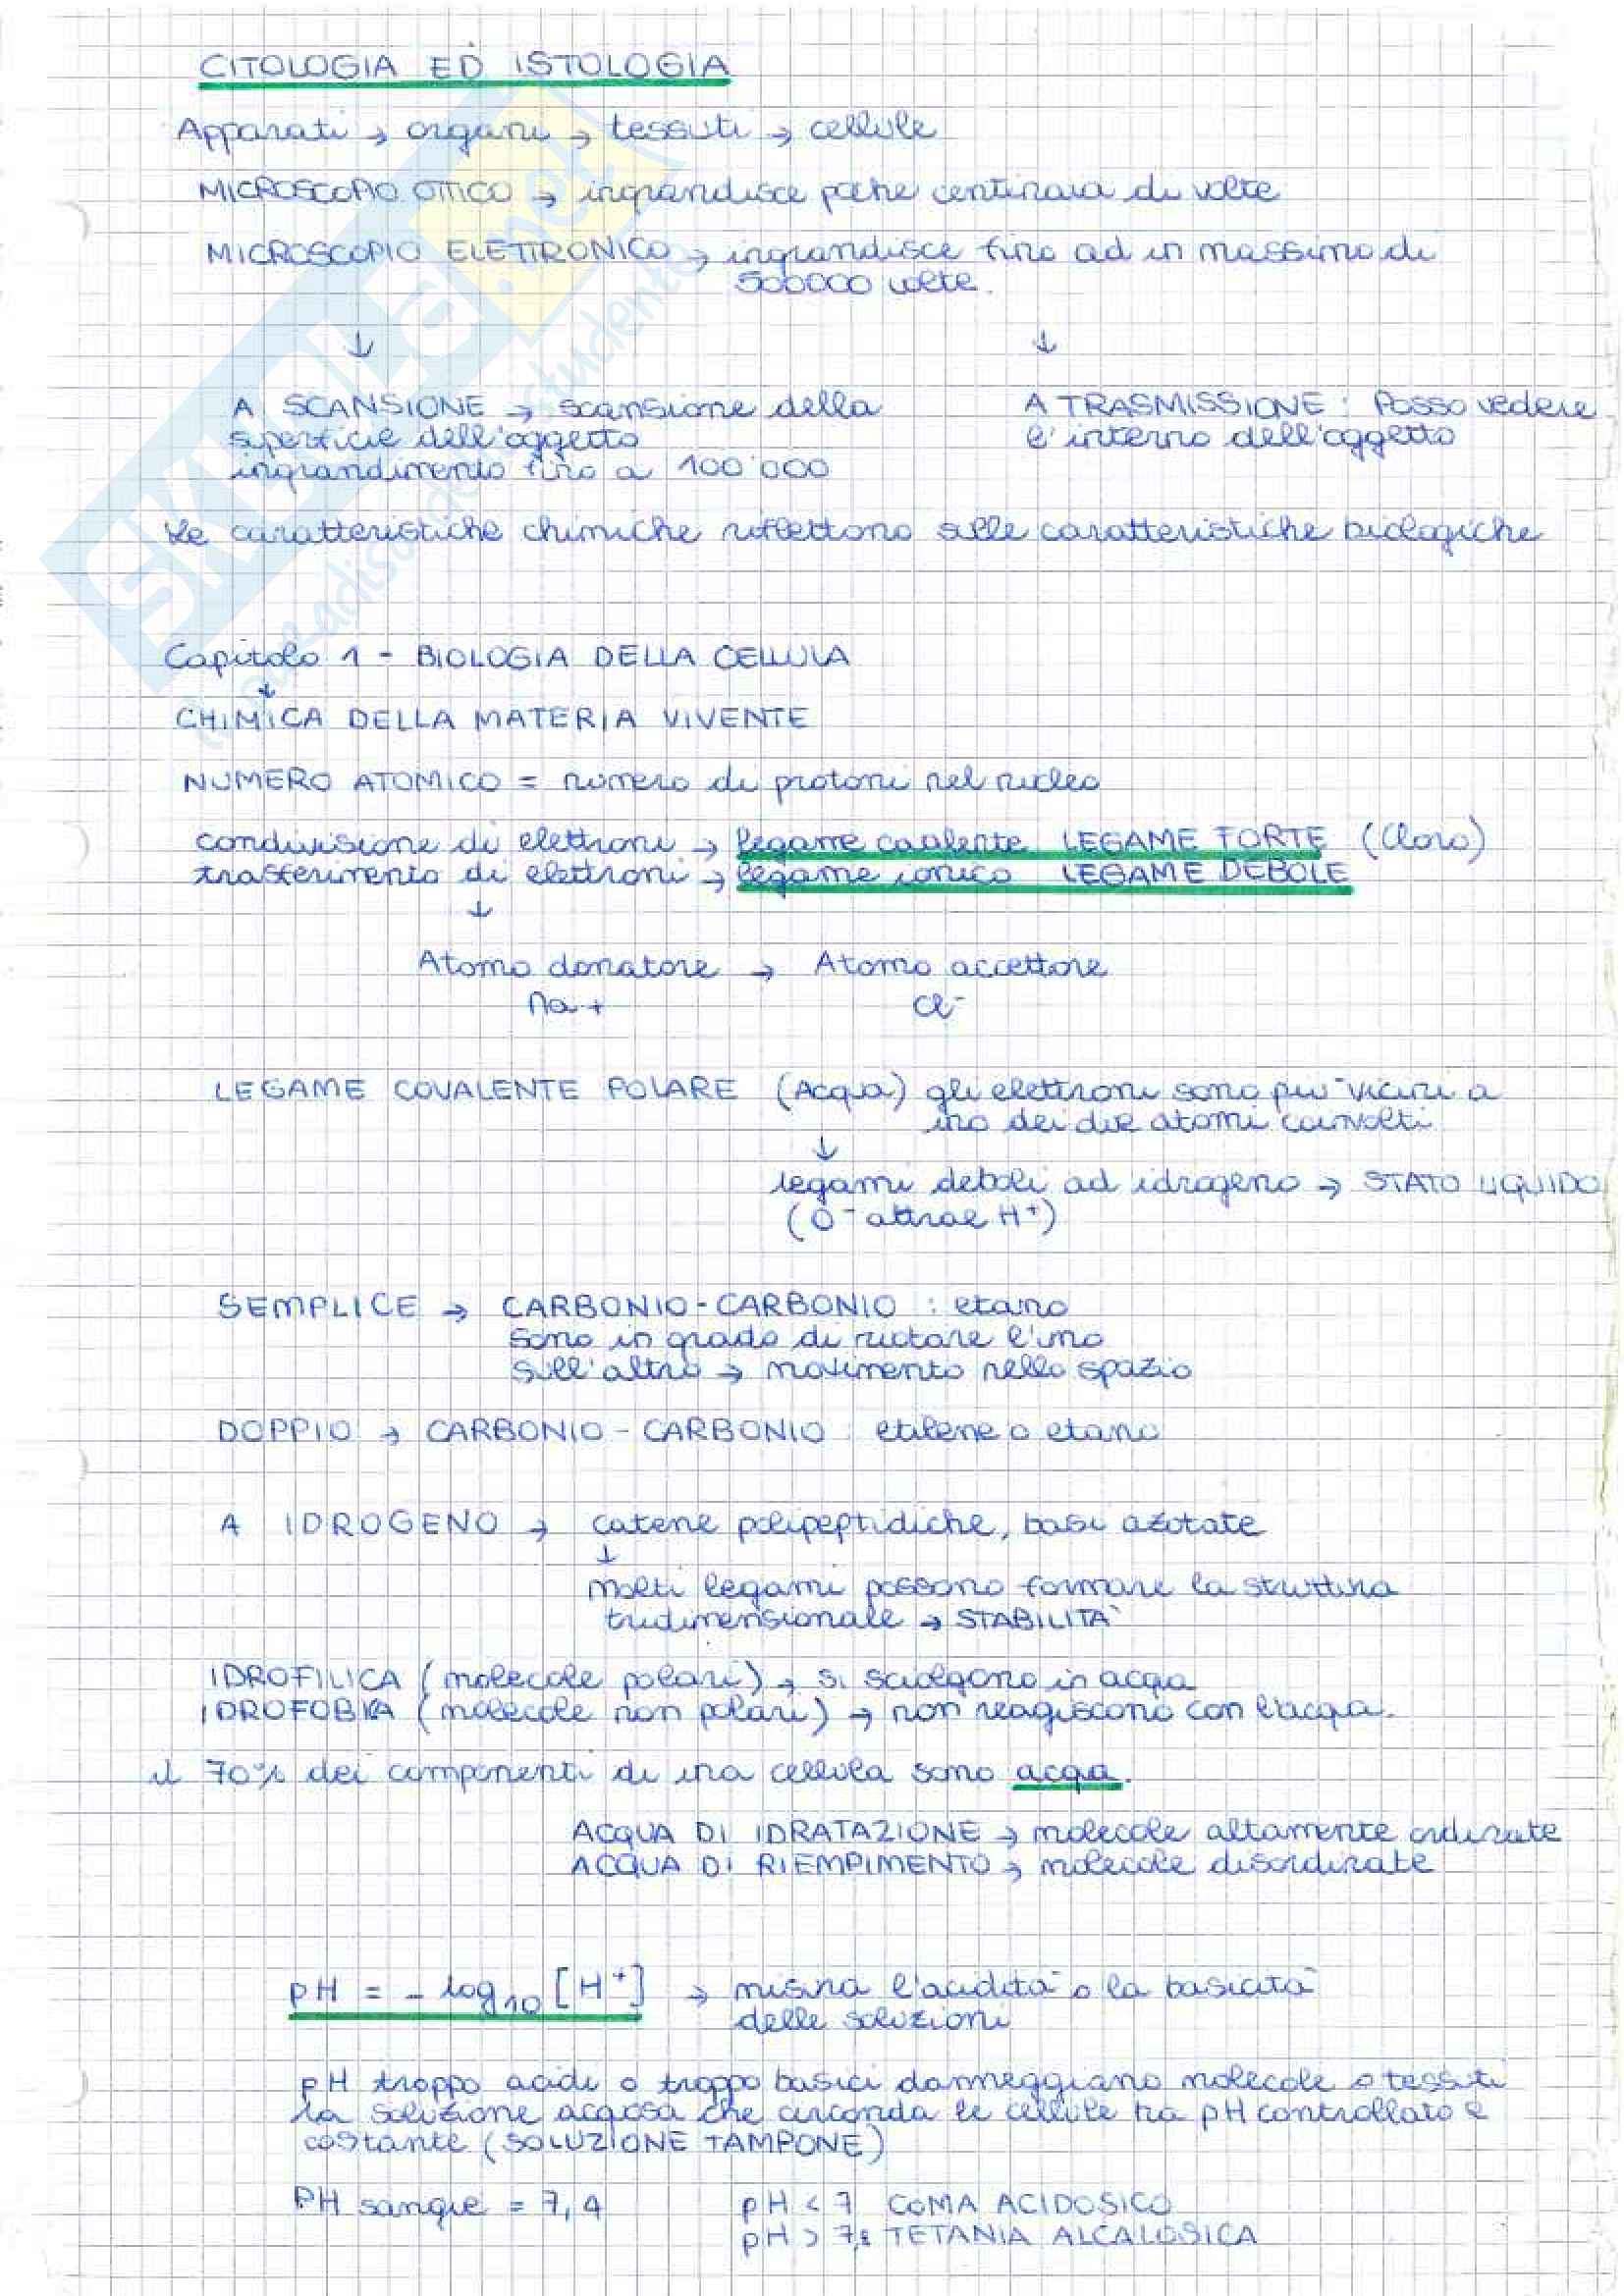 CITOLOGIA ED ISTOLOGIA
Apparati → organi → tessuti → cellule
MICROSCOPIO OTTICO → ingrandisce poche centinaia di volte
MICROSCOPIO ELETTRONICO → ingrandisce fino ad un massimo di
500000 volte.
↓ ↓
A SCANSIONE → scansione della
superficie dell'oggetto
ingrandimento fino a 100'000
A TRASMISSIONE: Posso vedere
l'interno dell'oggetto
Le caratteristiche chimiche riflettono sulle caratteristiche biologiche
Capitolo 1 - BIOLOGIA DELLA CELLULA
↓
CHIMICA DELLA MATERIA VIVENTE
NUMERO ATOMICO = numero di protoni nel nucleo
condivisione di elettroni → legame covalente LEGAME FORTE (Cloro)
trasferimento di elettroni → legame ionico LEGAME DEBOLE
↓
Atomo donatore → Atomo accettore
Na+ Cl-
LEGAME COVALENTE POLARE (Acqua) gli elettroni sono più vicini a
uno dei due atomi coinvolti
↓
legami deboli ad idrogeno → STATO LIQUIDO
(O- attrae H+)
SEMPLICE → CARBONIO-CARBONIO : etano
sono in grado di ruotare l'uno
sull'altro → movimento nello spazio
DOPPIO → CARBONIO - CARBONIO : etilene o etano
A IDROGENO → catene polipeptidiche, basi azotate
↓
Molti legami possono formare la struttura
tridimensionale → STABILITÀ
IDROFILICA (molecole polari) → si sciolgono in acqua
IDROFOBICA (molecole non polari) → non reagiscono con l'acqua.
il 70% dei componenti di una cellula sono acqua.
ACQUA DI IDRATAZIONE → molecole altamente ordinate
ACQUA DI RIEMPIMENTO → molecole disordinate
pH = - log10 [H+] → misura l'acidità o la basicità
delle soluzioni
pH troppo acidi o troppo basici danneggiano molecole o tessuti
la soluzione acquosa che circonda le cellule ha pH controllato e
costante (SOLUZIONE TAMPONE)
PH sangue = 7,4
pH < 7 COMA ACIDOSICO
pH > 7,8 TETANIA ALCALOSICA
SKUOLA.net